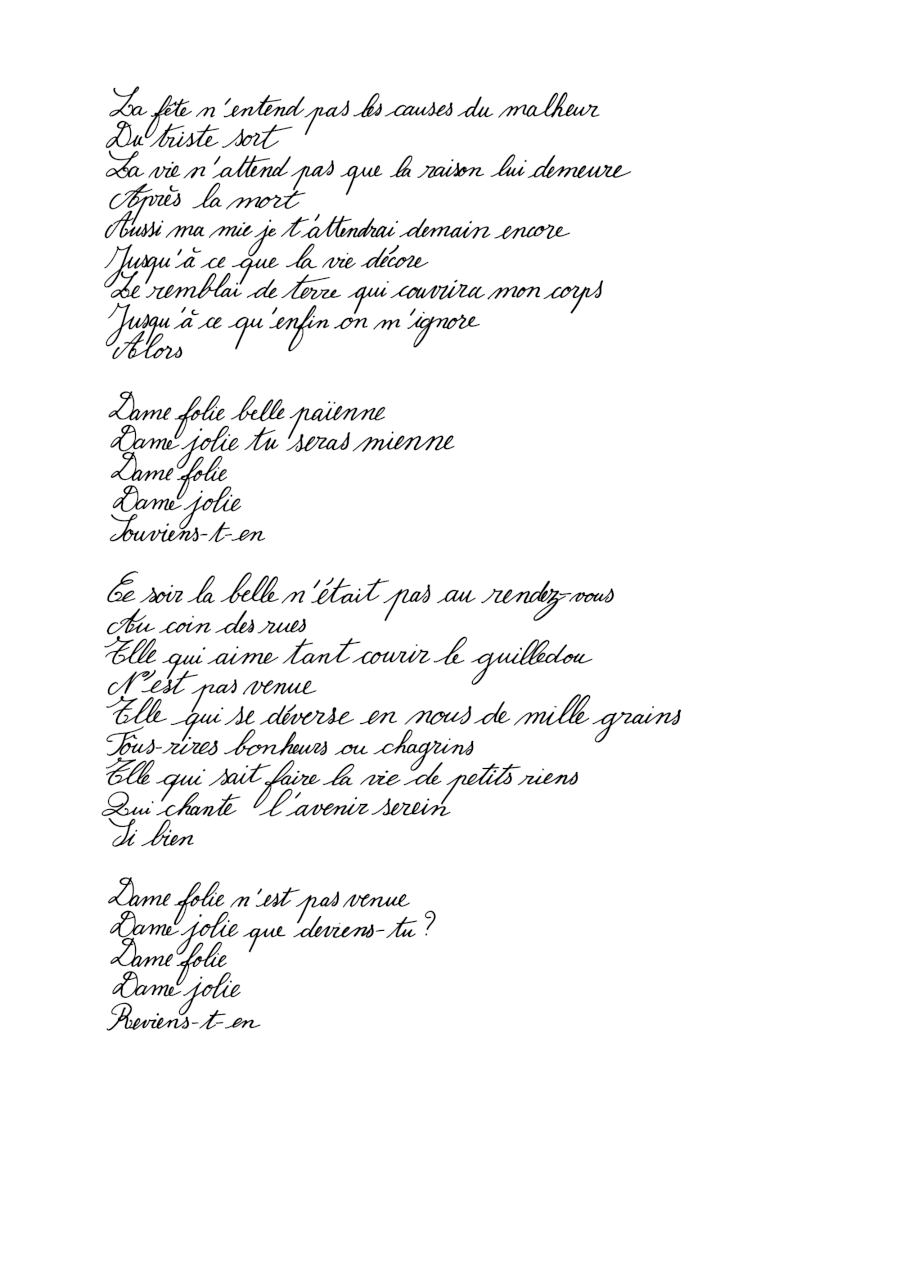 La fête n'entend pas les causes du malheur
Du triste sort
La vie n'attend pas que la raison lui demeure
Après la mort
Aussi ma mie je t'attendrai demain encore
Jusqu'à ce que la vie décore
Le remblai de terre qui couvrira mon corps
Jusqu'à ce qu'enfin on m'ignore
Alors

Dame folie belle païenne
Dame jolie tu seras mienne
Dame folie
Dame jolie
Souviens-t-en

Ce soir la belle n'était pas au rendez-vous
Au coin des rues
Elle qui aime tant courir le guilledou
N'est pas venue
Elle qui se déverse en nous de mille grains
Fous-rires bonheurs ou chagrins
Elle qui sait faire la vie de petits riens
Qui chante l'avenir serein
Si bien

Dame folie n'est pas venue
Dame jolie que deviens-tu ?
Dame folie
Dame jolie
Reviens-t-en